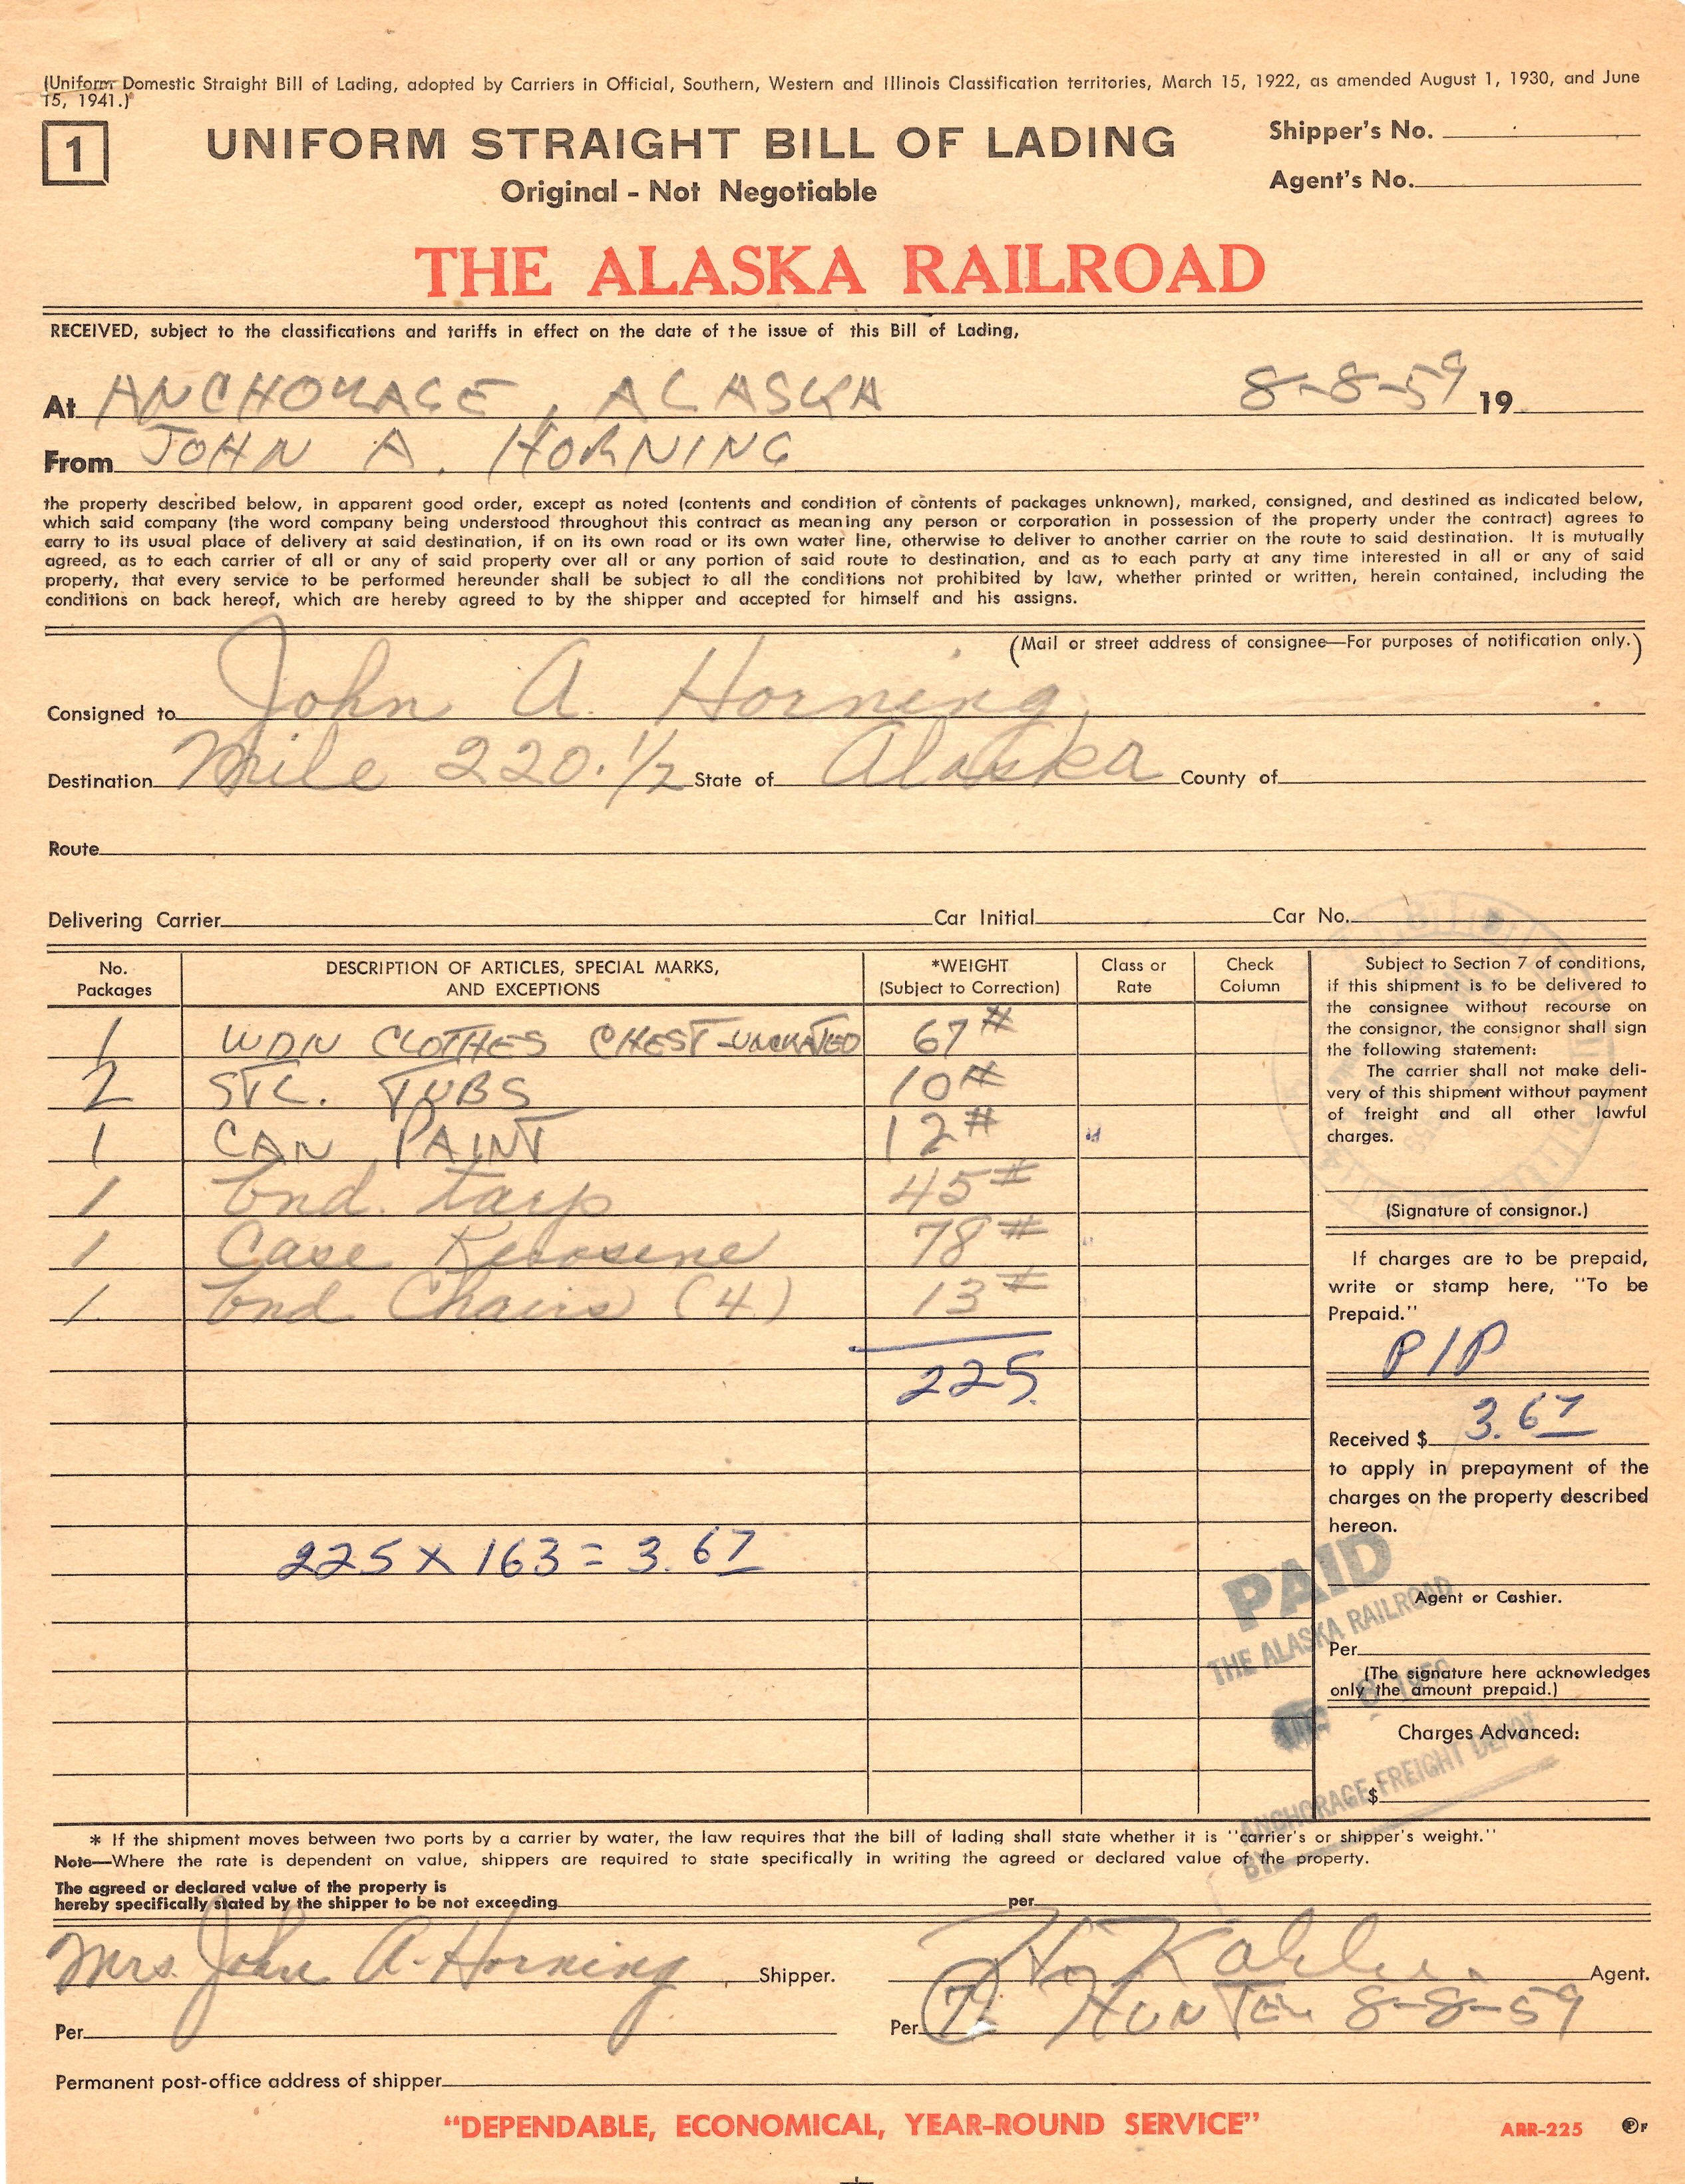 (Uniform Domestic Straight Bill of Lading, adopted by Carriers in Official, Southern, Western and Illinois Classification territories, March 15, 1922, as amended August 1, 1930, and June
15, 1941.)
1
UNIFORM STRAIGHT BILL OF LADING
Original - Not Negotiable
Shipper's No.
Agent's No.
THE ALASKA RAILROAD
RECEIVED, subject to the classifications and tariffs in effect on the date of the issue of this Bill of Lading,
At ANCHORAGE, ALASKA 8-8-59 19
From JOHN A. HORNING
the property described below, in apparent good order, except as noted (contents and condition of contents of packages unknown), marked, consigned, and destined as indicated below,
which said company (the word company being understood throughout this contract as meaning any person or corporation in possession of the property under the contract) agrees to
carry to its usual place of delivery at said destination, if on its own road or its own water line, otherwise to deliver to another carrier on the route to said destination. It is mutually
agreed, as to each carrier of all or any of said property over all or any portion of said route to destination, and as to each party at any time interested in all or any of said
property, that every service to be performed hereunder shall be subject to all the conditions not prohibited by law, whether printed or written, herein contained, including the
conditions on back hereof, which are hereby agreed to by the shipper and accepted for himself and his assigns.
(Mail or street address of consignee—For purposes of notification only.)
Consigned to John A. Horning
Destination Mile 220.1/2 State of Alaska County of
Route
Delivering Carrier Car Initial Car No.
No. Packages DESCRIPTION OF ARTICLES, SPECIAL MARKS, AND EXCEPTIONS *WEIGHT (Subject to Correction) Class or Rate Check Column
1 WDN CLOTHES CHEST-UNCRATED 67#
2 STL. TUBS 10#
1 CAN PAINT 12#
1 bnd. tarp 45#
1 Case Kerosene 78#
1 bnd Chairs (4) 13#
225.
225 x 163 = 3.67
Subject to Section 7 of conditions,
if this shipment is to be delivered to
the consignee without recourse on
the consignor, the consignor shall sign
the following statement:
The carrier shall not make deli-
very of this shipment without payment
of freight and all other lawful
charges.
(Signature of consignor.)
If charges are to be prepaid,
write or stamp here, "To be
Prepaid."
P/P
Received $ 3.67
to apply in prepayment of the
charges on the property described
hereon.
PAID
THE ALASKA RAILROAD
ANCHORAGE FREIGHT DEPOT
BY
Agent or Cashier.
Per
(The signature here acknowledges
only the amount prepaid.)
Charges Advanced:
$
* If the shipment moves between two ports by a carrier by water, the law requires that the bill of lading shall state whether it is "carrier's or shipper's weight."
Note—Where the rate is dependent on value, shippers are required to state specifically in writing the agreed or declared value of the property.
The agreed or declared value of the property is
hereby specifically stated by the shipper to be not exceeding per
Mrs. John A. Horning Shipper. Agent.
Per Per HUNTER 8-8-59
Permanent post-office address of shipper
"DEPENDABLE, ECONOMICAL, YEAR-ROUND SERVICE"
ARR-225